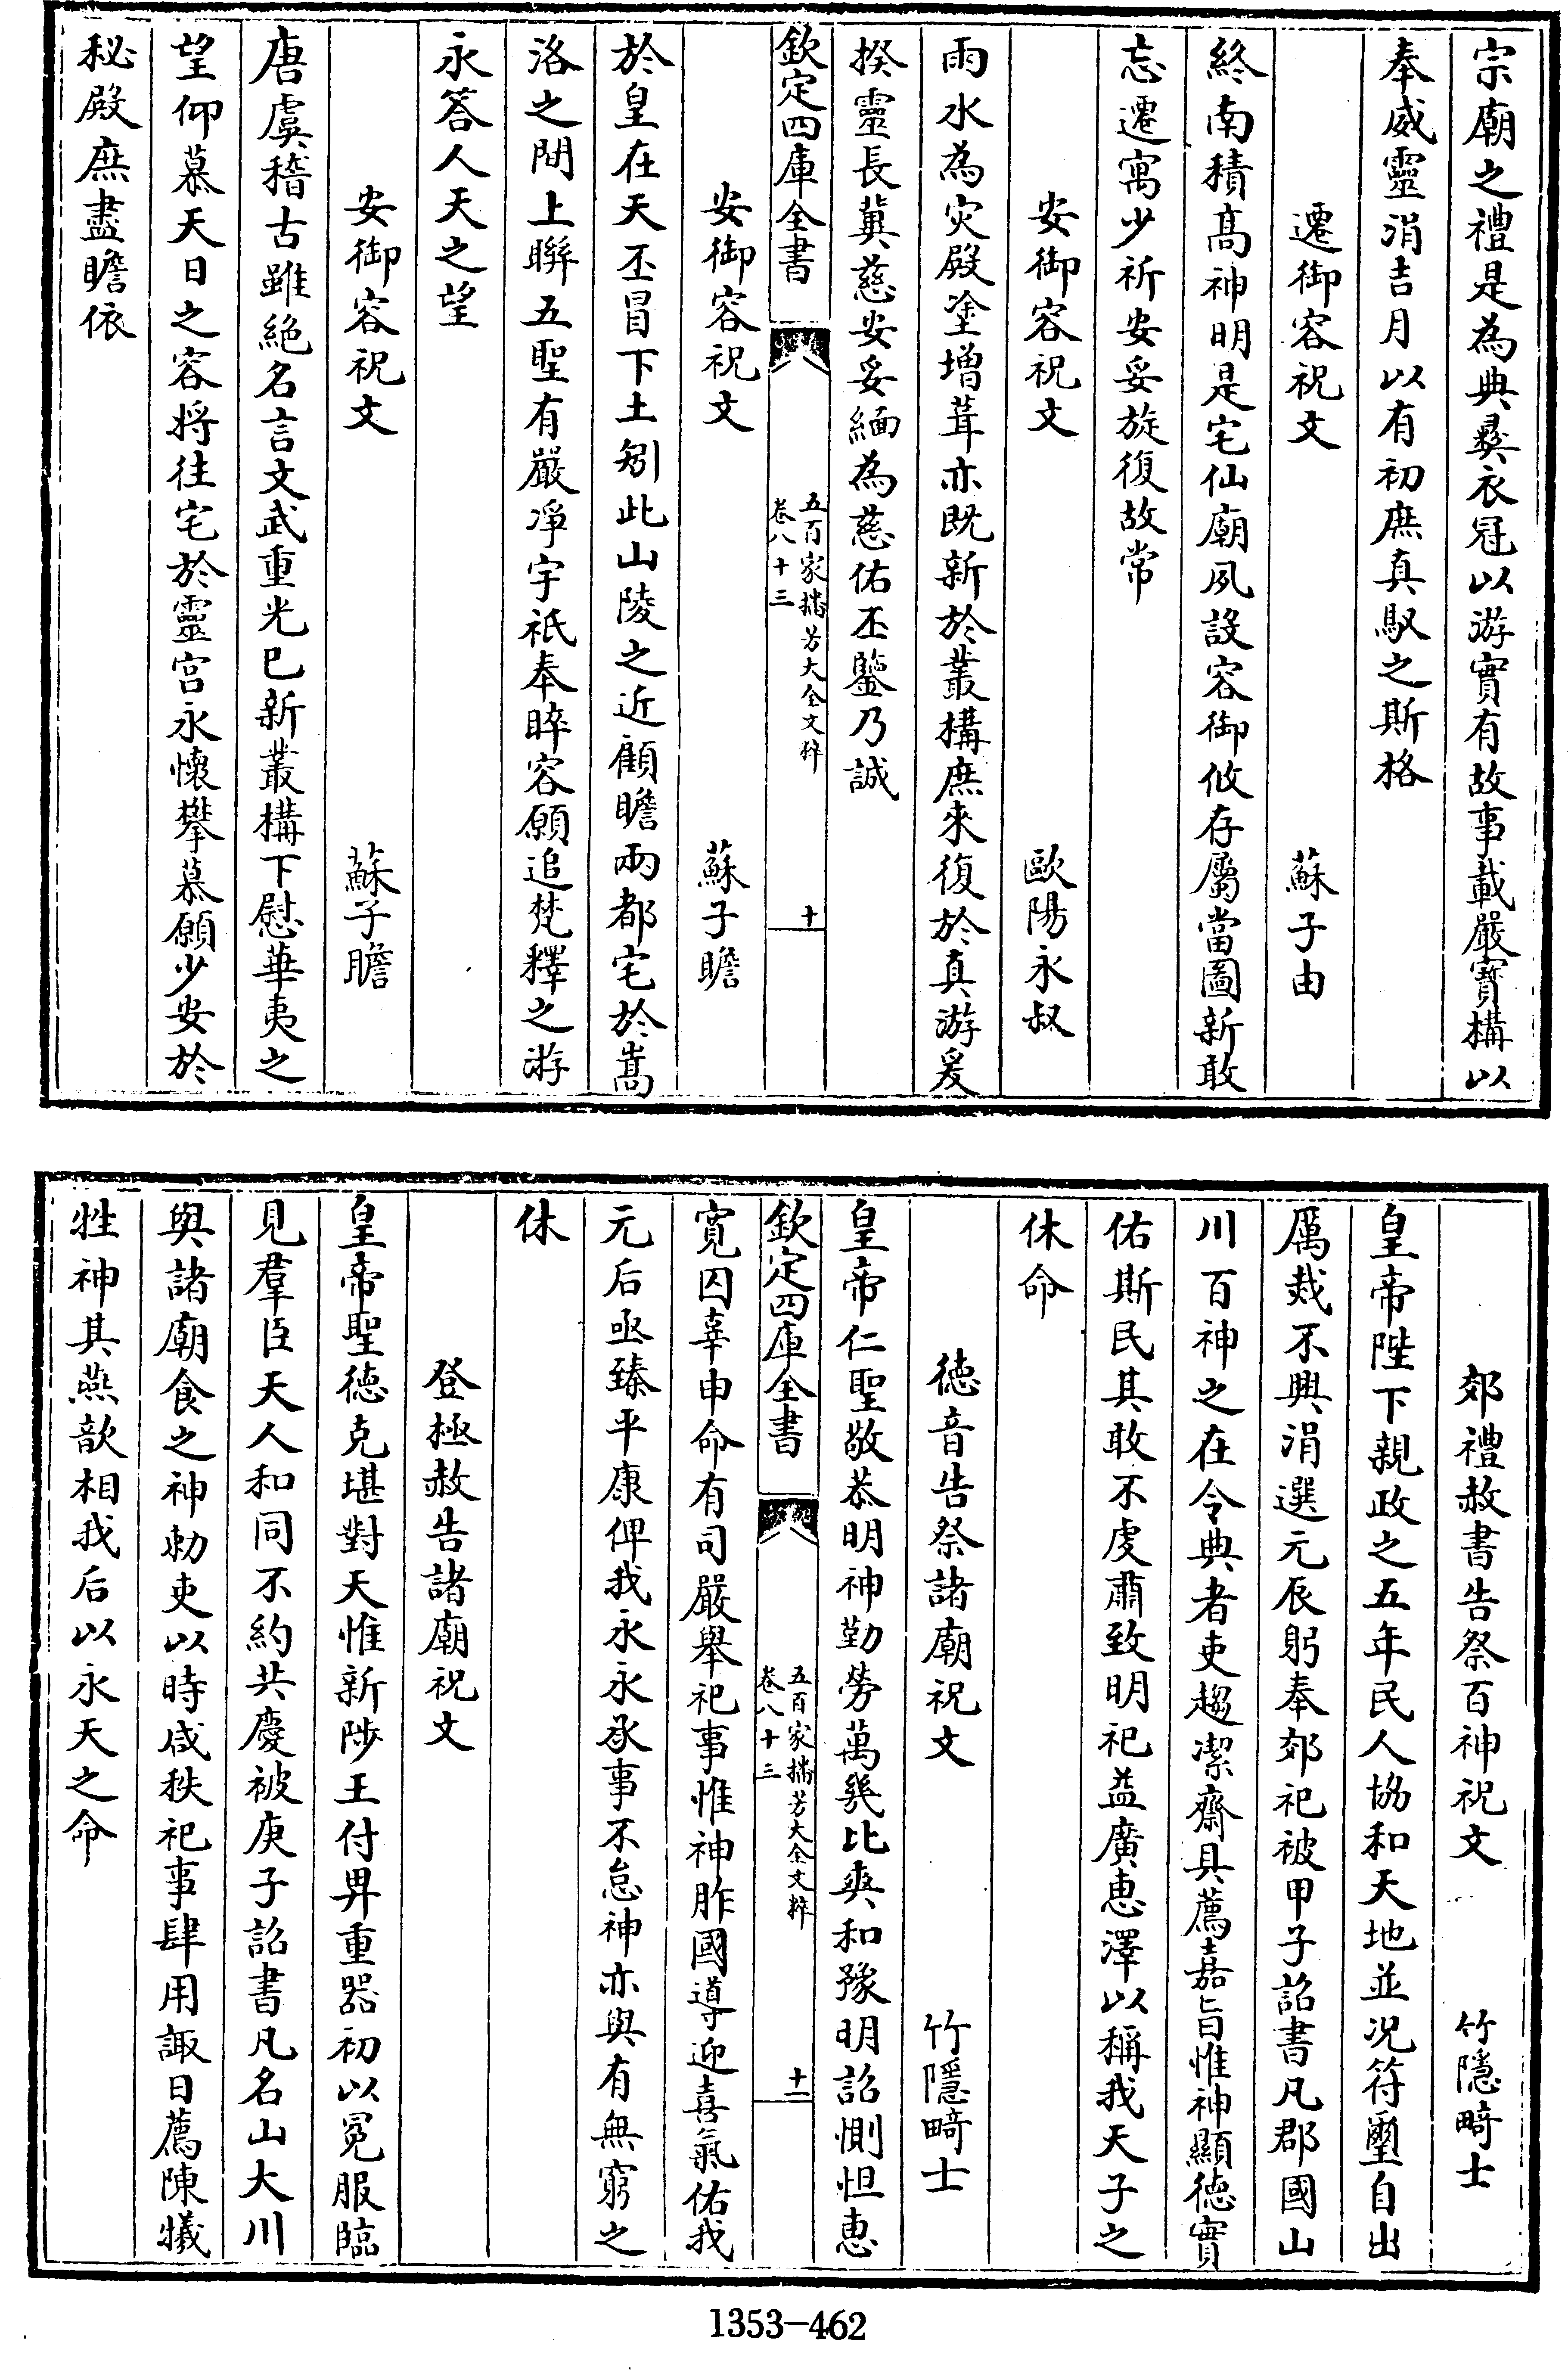 宗廟之禮是為典彛衣冠以游實有故事載嚴寳構以
奉威靈涓吉月以有初庶真馭之斯格
遷御容祝文 蘇子由
終南積髙神明是宅仙廟夙設容御攸存屬當圖新敢
忘遷寓少祈安妥旋復故常
安御容祝文 歐陽永叔
雨水為灾殿塗増葺亦既新於叢構庶來復於真游爰
揆靈長冀慈安妥緬為慈佑丕鑒乃誠
欽定四庫全書
五百家播芳大全文粹
卷八十三
十
安御容祝文 蘇子瞻
於皇在天丕冒下土矧此山陵之近顧瞻兩都宅於嵩
洛之間上聨五聖有嚴凈宇祇奉睟容願追梵釋之游
永答人天之望
安御容祝文 蘇子瞻
唐虞稽古雖絶名言文武重光已新叢構下慰華夷之
望仰慕天日之容将往宅於靈宫永懷攀慕願少安於
秘殿庶盡瞻依
郊禮赦書告祭百神祝文 竹隱畸士
皇帝陛下親政之五年民人協和天地並况符璽自出
厲烖不興涓選元辰躬奉郊祀被甲子詔書凡郡國山
川百神之在令典者吏趨潔齋具薦嘉旨惟神顯徳實
佑斯民其敢不虔肅致明祀益廣恵澤以稱我天子之
休命
徳音告祭諸廟祝文 竹隱畸士
皇帝仁聖敬恭明神勤勞萬㡬比爽和豫明詔惻怛恵
欽定四庫全書
五百家播芳大全文粹
卷八十三
十一
寛囚辜申命有司嚴舉祀事惟神胙國導迎喜氣佑我
元后亟臻平康俾我永永承事不怠神亦與有無窮之
休
登極赦告諸廟祝文
皇帝聖徳克堪對天惟新陟王付畀重器初以冕服臨
見羣臣天人和同不約共慶被庚子詔書凡名山大川
與諸廟食之神勅吏以時咸秩祀事肆用諏日薦陳犧
牲神其燕歆相我后以永天之命
1353-462